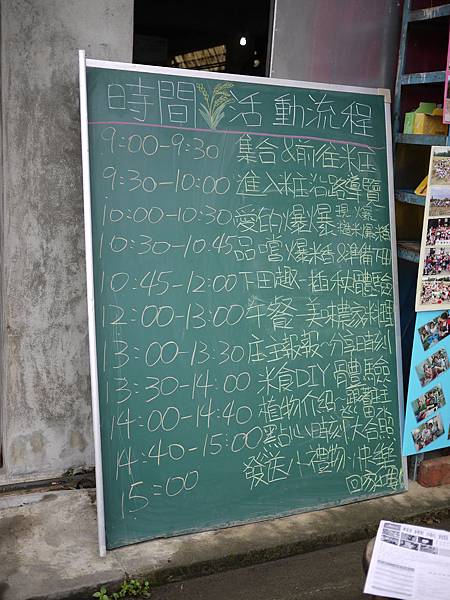 時間 活動流程
9:00-9:30 集合&前往米庄
9:30-10:00 進入粧沿路導覽
10:00-10:30 愛的爆爆-現爆糙米爆糕
10:30-10:45 品嚐爆米香&準備下田
10:45-12:00 下田趣-插秧體驗
12:00-13:00 午餐-美味農家料理
13:00-13:30 庄主報報-分享時刻
13:30-14:00 米食DIY體驗
14:00-14:40 植物介紹~露營踏
14:40-15:00 點心時刻大合照
15:00 發送小禮物.快樂
回家